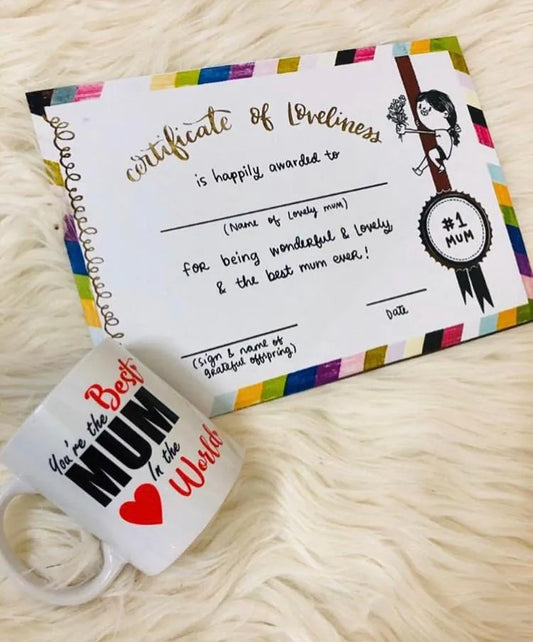 certificate of Loveliness
is happily awarded to
(Name of Lovely mum)
For being wonderful & Lovely
& the best mum ever!
#1
MUM
Date
(Sign & name of
grateful offspring)
You're the Best
MUM
In the
World